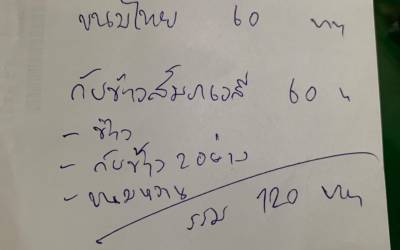 ขนมไทย 60 บาท
กับข้าวสัมภเวสี 60 บ
- ข้าว
- กับข้าว 2 อย่าง
- ขนมหวาน
รวม 120 บาท